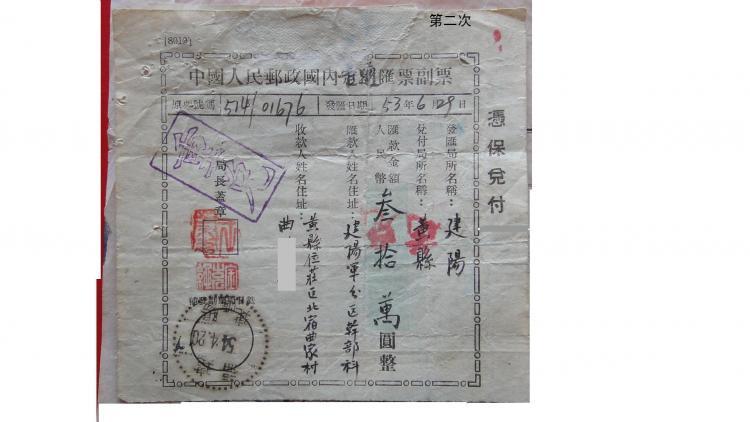 第二次
[8019]
中國人民郵政國內匯票副票
514/01676
發匯日期 53年6月29日
憑保兌付
發匯局所名稱：建陽
兌付局所名稱：黃縣
匯款金額人民幣叁拾萬圓整
匯款人姓名住址：建陽軍分區幹部科
收款人姓名住址：黃縣位莊區北宿曲家村
曲
局長蓋章